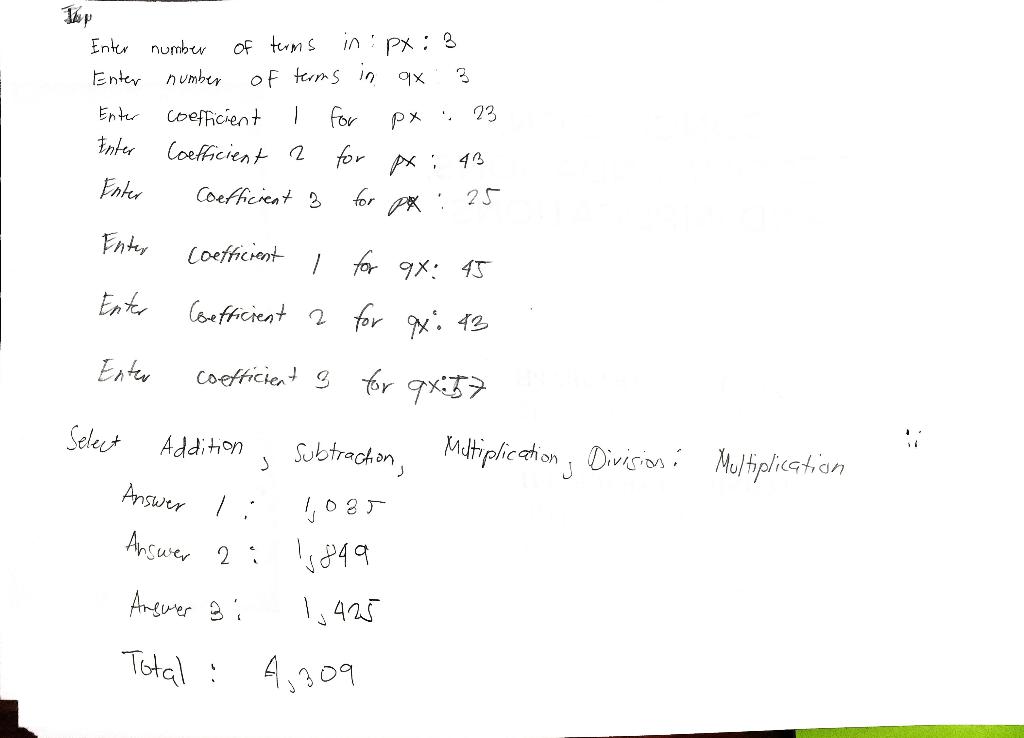 Enter number of terms in : px : 3
Enter number of terms in qx 3
Enter coefficient 1 for px : 23
Enter Coefficient 2 for px : 43
Enter Coefficient 3 for px : 25
Enter Coefficient 1 for qx: 45
Enter Coefficient 2 for qx: 43
Enter coefficient 3 for qx:57
Select Addition, Subtraction, Multiplication, Division: Multiplication
Answer 1 : 1,035
Answer 2 : 1,849
Answer 3 : 1,425
Total : 4,309